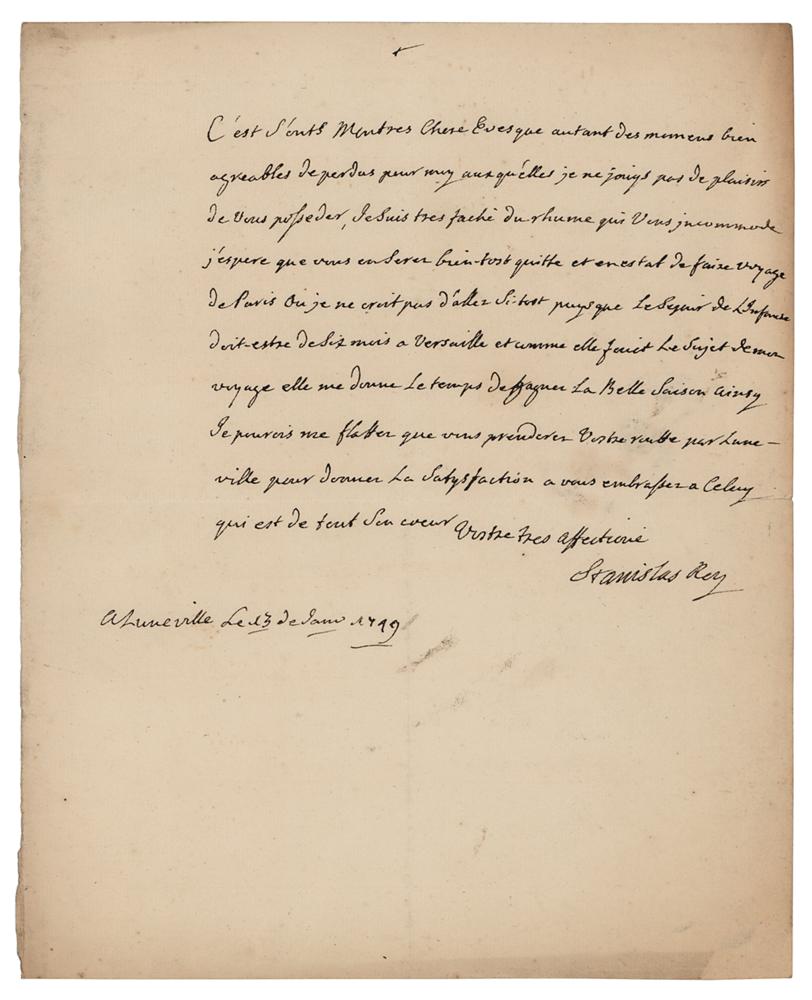 C'est s'ont Mon tres Chere Evesque autant des momens bien
agreables de perdus pour moy aux qu'elles je ne jouys pas de plaisir
de Vous posseder, Je suis tres faché du rhume qui Vous jncommode
j'espere que vous en serez bien-tost quitte et en estat de faire voyage
de Paris Ou je ne croit pas d'aller si-tost puysque Le Sejour de L'Infante
doit-estre de Six mois a Versaille et comme elle fait Le Sujet de mon
voyage elle me donne Le temps de gagner La Belle Saison Ainsy
Je pourois me flatter que vous prenderez Vostre routte par Lune-
ville pour donner La Satysfaction a vous embrasser a Celuy
qui est de tout Son coeur Vostre tres affectioné
Stanislas Roy
A Luneville Le 13 de Janv 1749